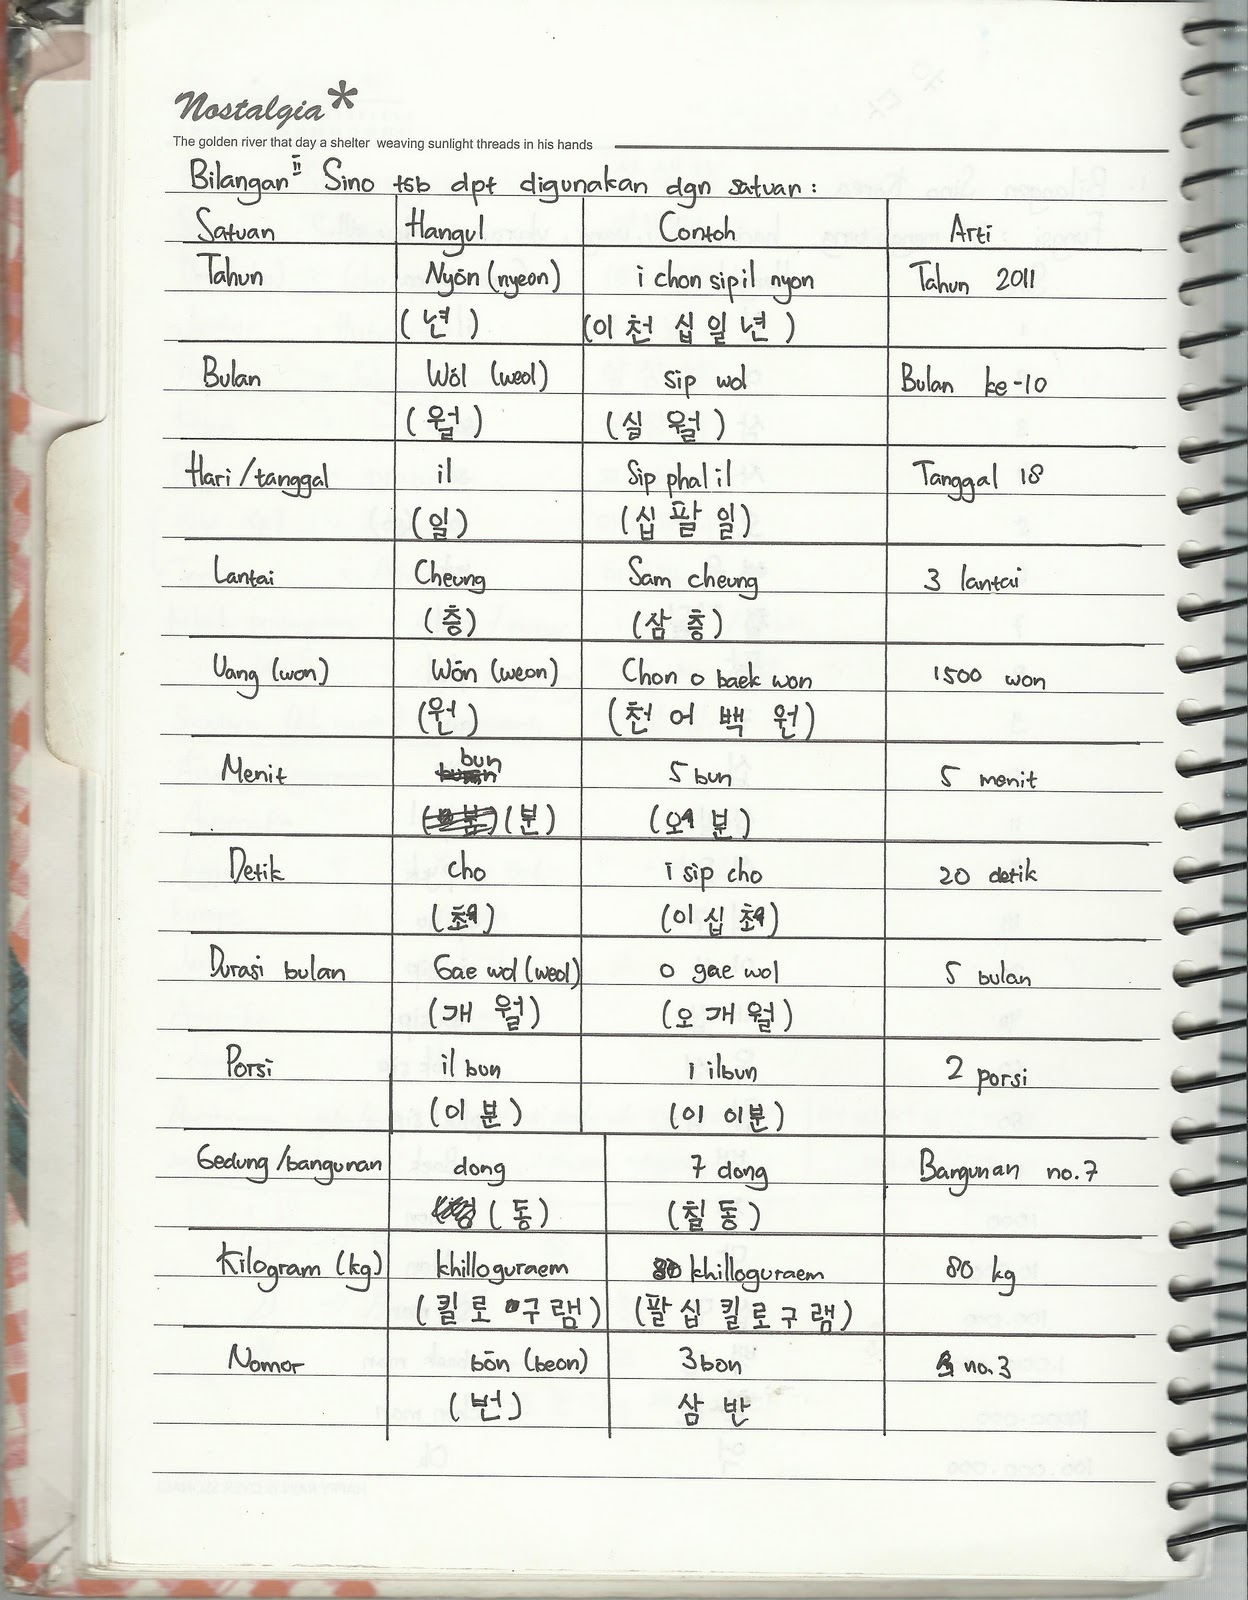 Nostalgia*
The golden river that day a shelter weaving sunlight threads in his hands
Bilangan" Sino tsb dpt digunakan dgn satuan :
Satuan Hangul Contoh Arti
Tahun Nyŏn (nyeon) i chon sipil nyon Tahun 2011
( 년 ) (이 천 십 일 년 )
Bulan Wŏl (weol) sip wol Bulan ke-10
( 월 ) ( 실 월 )
Hari / tanggal il Sip phal il Tanggal 18
( 일 ) ( 십 팔 일 )
Lantai Cheung Sam cheung 3 lantai
( 층 ) ( 삼 층 )
Uang (won) Wŏn (weon) Chon o baek won 1500 won
( 원 ) ( 천 어 백 원 )
Menit bun 5 bun 5 menit
( 분 ) ( 오 분 )
Detik cho i sip cho 20 detik
( 초 ) ( 이 십 초 )
Durasi bulan Gae wol (weol) o gae wol 5 bulan
( 개 월 ) ( 오 개 월 )
Porsi il bun i ilbun 2 porsi
( 이 분 ) ( 이 이분 )
Gedung /bangunan dong 7 dong Bangunan no.7
( 동 ) ( 칠 동 )
Kilogram (kg) khilloguraem 80 khilloguraem 80 kg
( 킬 로 구 램 ) ( 팔 십 킬 로 구 램 )
Nomor bŏn (beon) 3 bon no.3
( 번 ) 삼 반